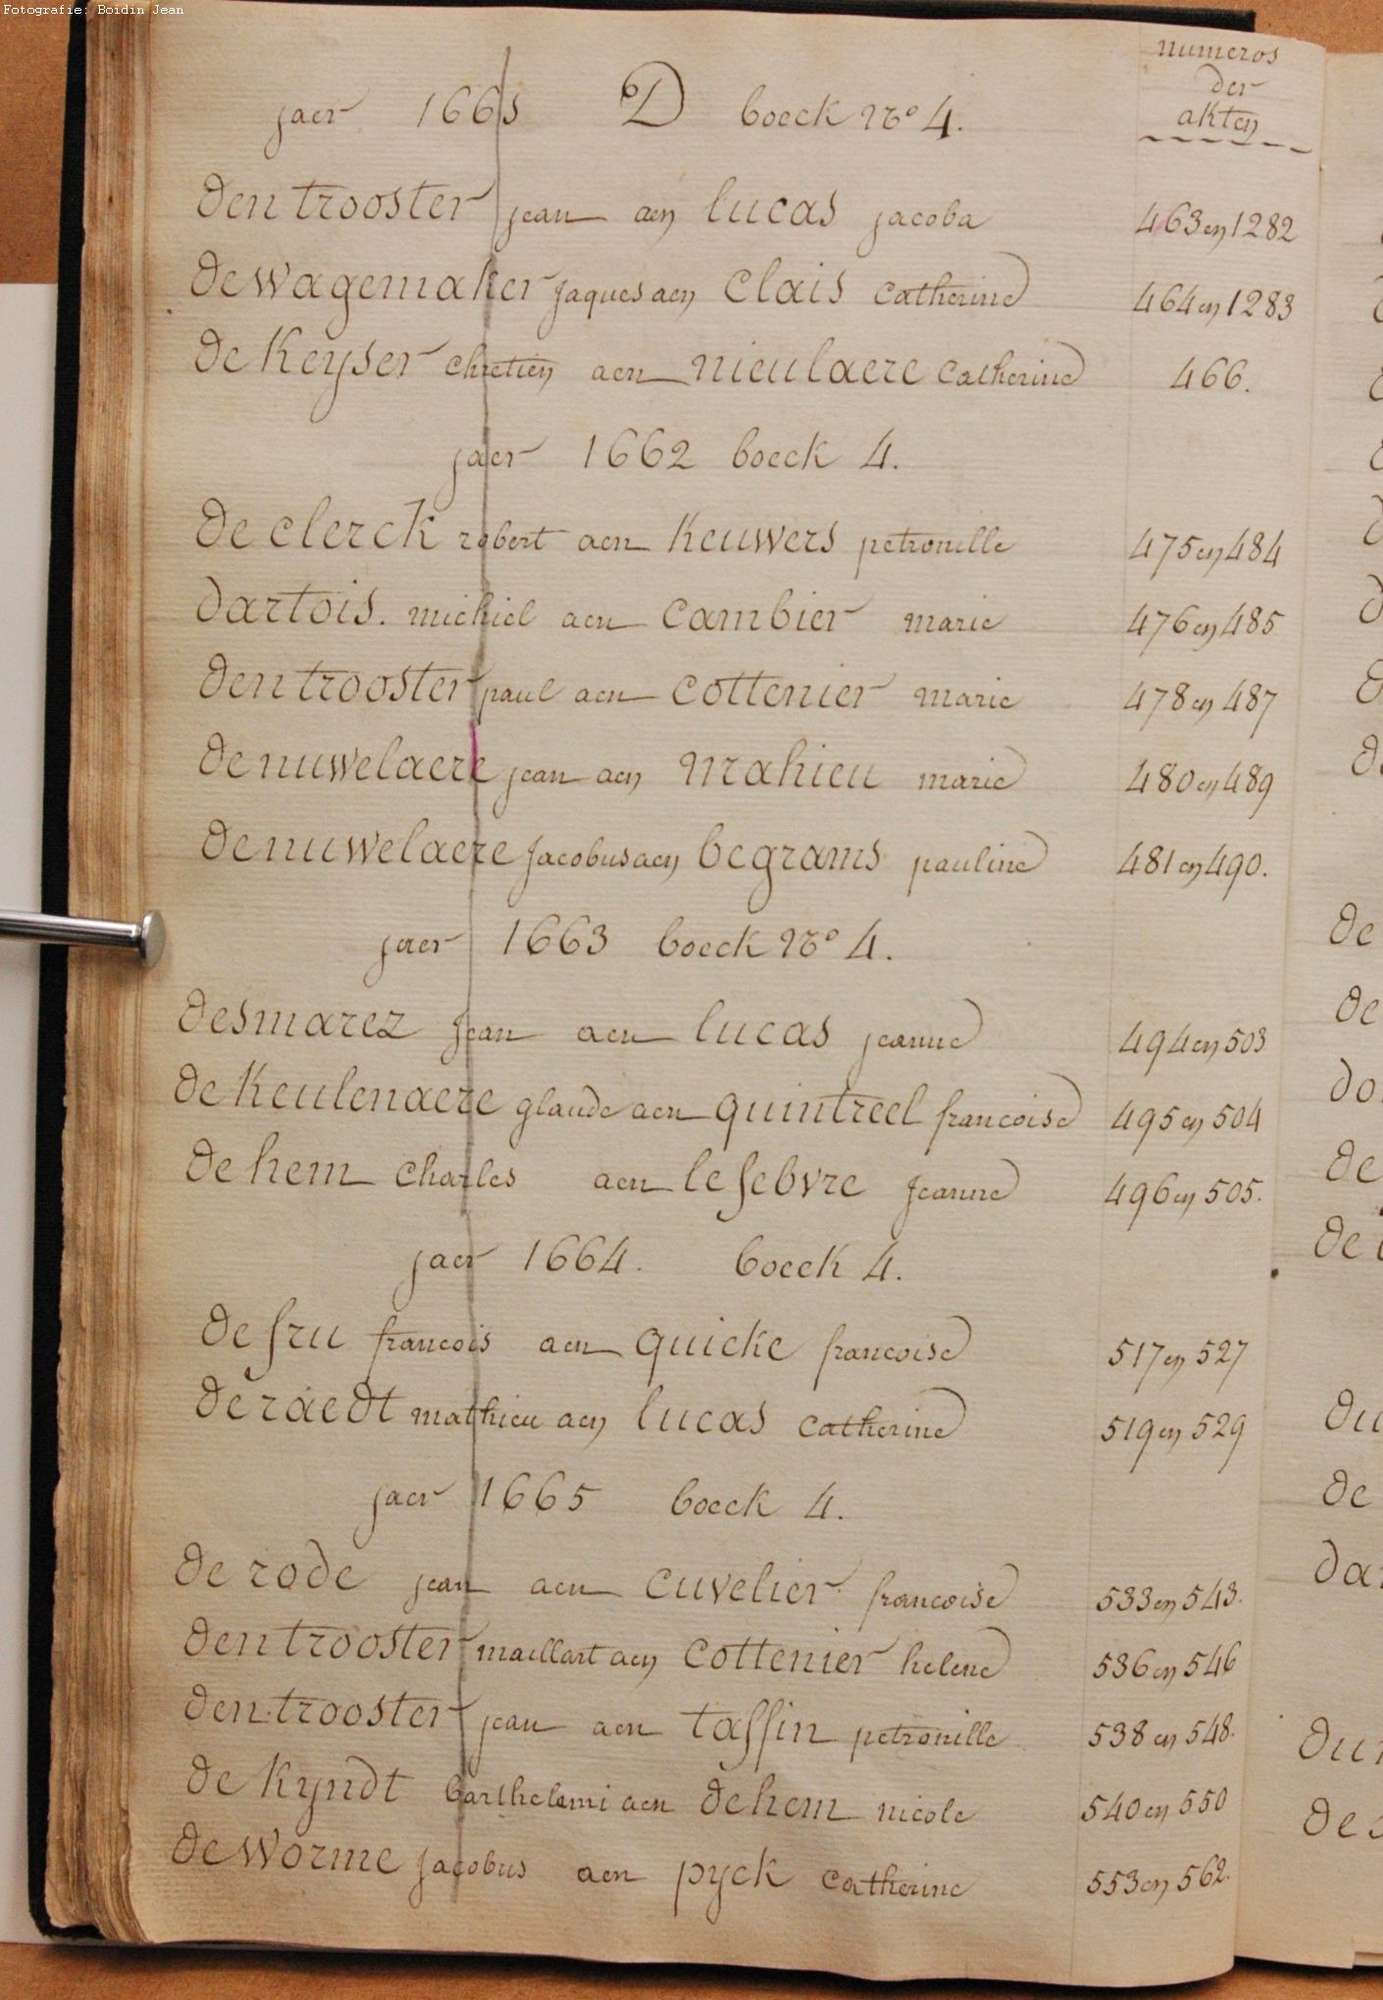 Fotografie: Boidin Jean
numeros
der
akten
jaer 1661 D boeck No 4.
den trooster jean aen lucas jacoba 463 en 1282
de wagemaker jaques aen clais catherine 464 en 1283
de Keyser chretien aen nieulaere catherine 466.
jaer 1662 boeck 4.
de clerck robert aen Keuwers petronille 475 en 484
dartois. michiel aen cambier marie 476 en 485
den trooster paul aen cottenier marie 478 en 487
denuwelaere jean aen mahieu marie 480 en 489
denuwelaere jacobus aen begrams pauline 481 en 490.
jaer 1663 boeck No 4.
desmarez jean aen lucas jeanne 494 en 503
de Keulenaere glaude aen quintreel francoise 495 en 504
de hem charles aen le febvre jeanne 496 en 505.
jaer 1664. boeck 4.
de fru francois aen quicke francoise 517 en 527
de raedt mathieu aen lucas catherine 519 en 529
jaer 1665 boeck 4.
de rode jean aen cuvelier francoise 533 en 543.
den trooster maillart aen cottenier helene 536 en 546
den trooster jean aen taffin petronille 538 en 548.
de Kyndt barthelemi aen dehem nicole 540 en 550
de worme jacobus aen pyck catherine 553 en 562.